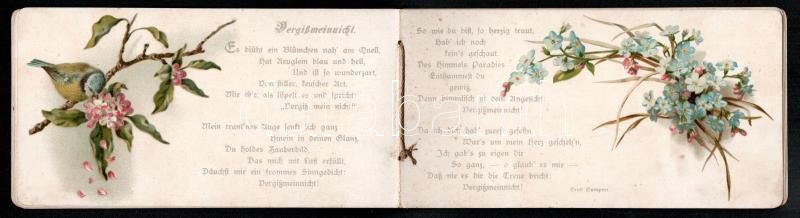 Vergißmeinnicht.
Es blüht ein Blümchen nah' am Quell,
Hat Äuglein blau und hell,
Und ist so wunderzart,
Von stiller, keuscher Art.
Mir ist's, als lispelt es und spricht:
„Vergiß mein nicht!"
Mein Auge senkt sich ganz
in deinen Glanz,
Du holdes Zauberbild,
Das mich mit Lust erfüllt,
Däucht's mir ein frommes Sinngedicht:
Vergißmeinnicht!
So wie du bist, so herzig traut,
Hab' ich noch
kein's geschaut.
Des Himmels Paradies
Entstammest du
gewiß,
Denn himmlisch ist dein Angesicht:
Vergißmeinnicht!
Da ich dich hat' zuerst gesehn,
War's um mein Herz geschehn,
Ich gab's zu eigen dir
So ganz, — o glaub' es mir —
Daß nie es dir die Treue bricht:
Vergißmeinnicht!